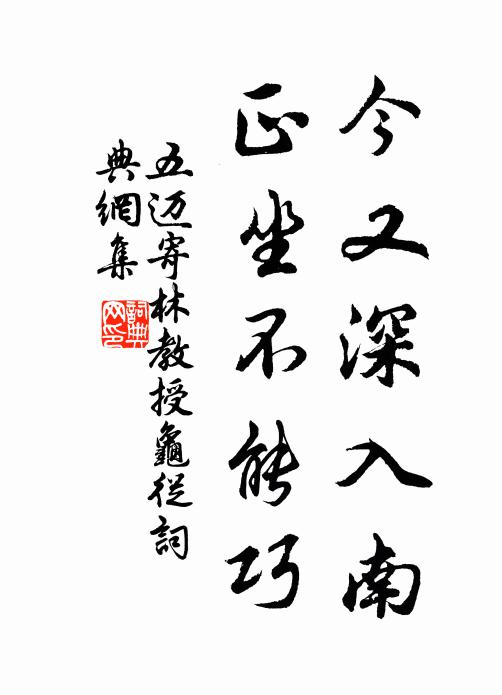 今又深入南
正坐不能巧
五迈寄林教授龜從詞
典網集
詞典
网印